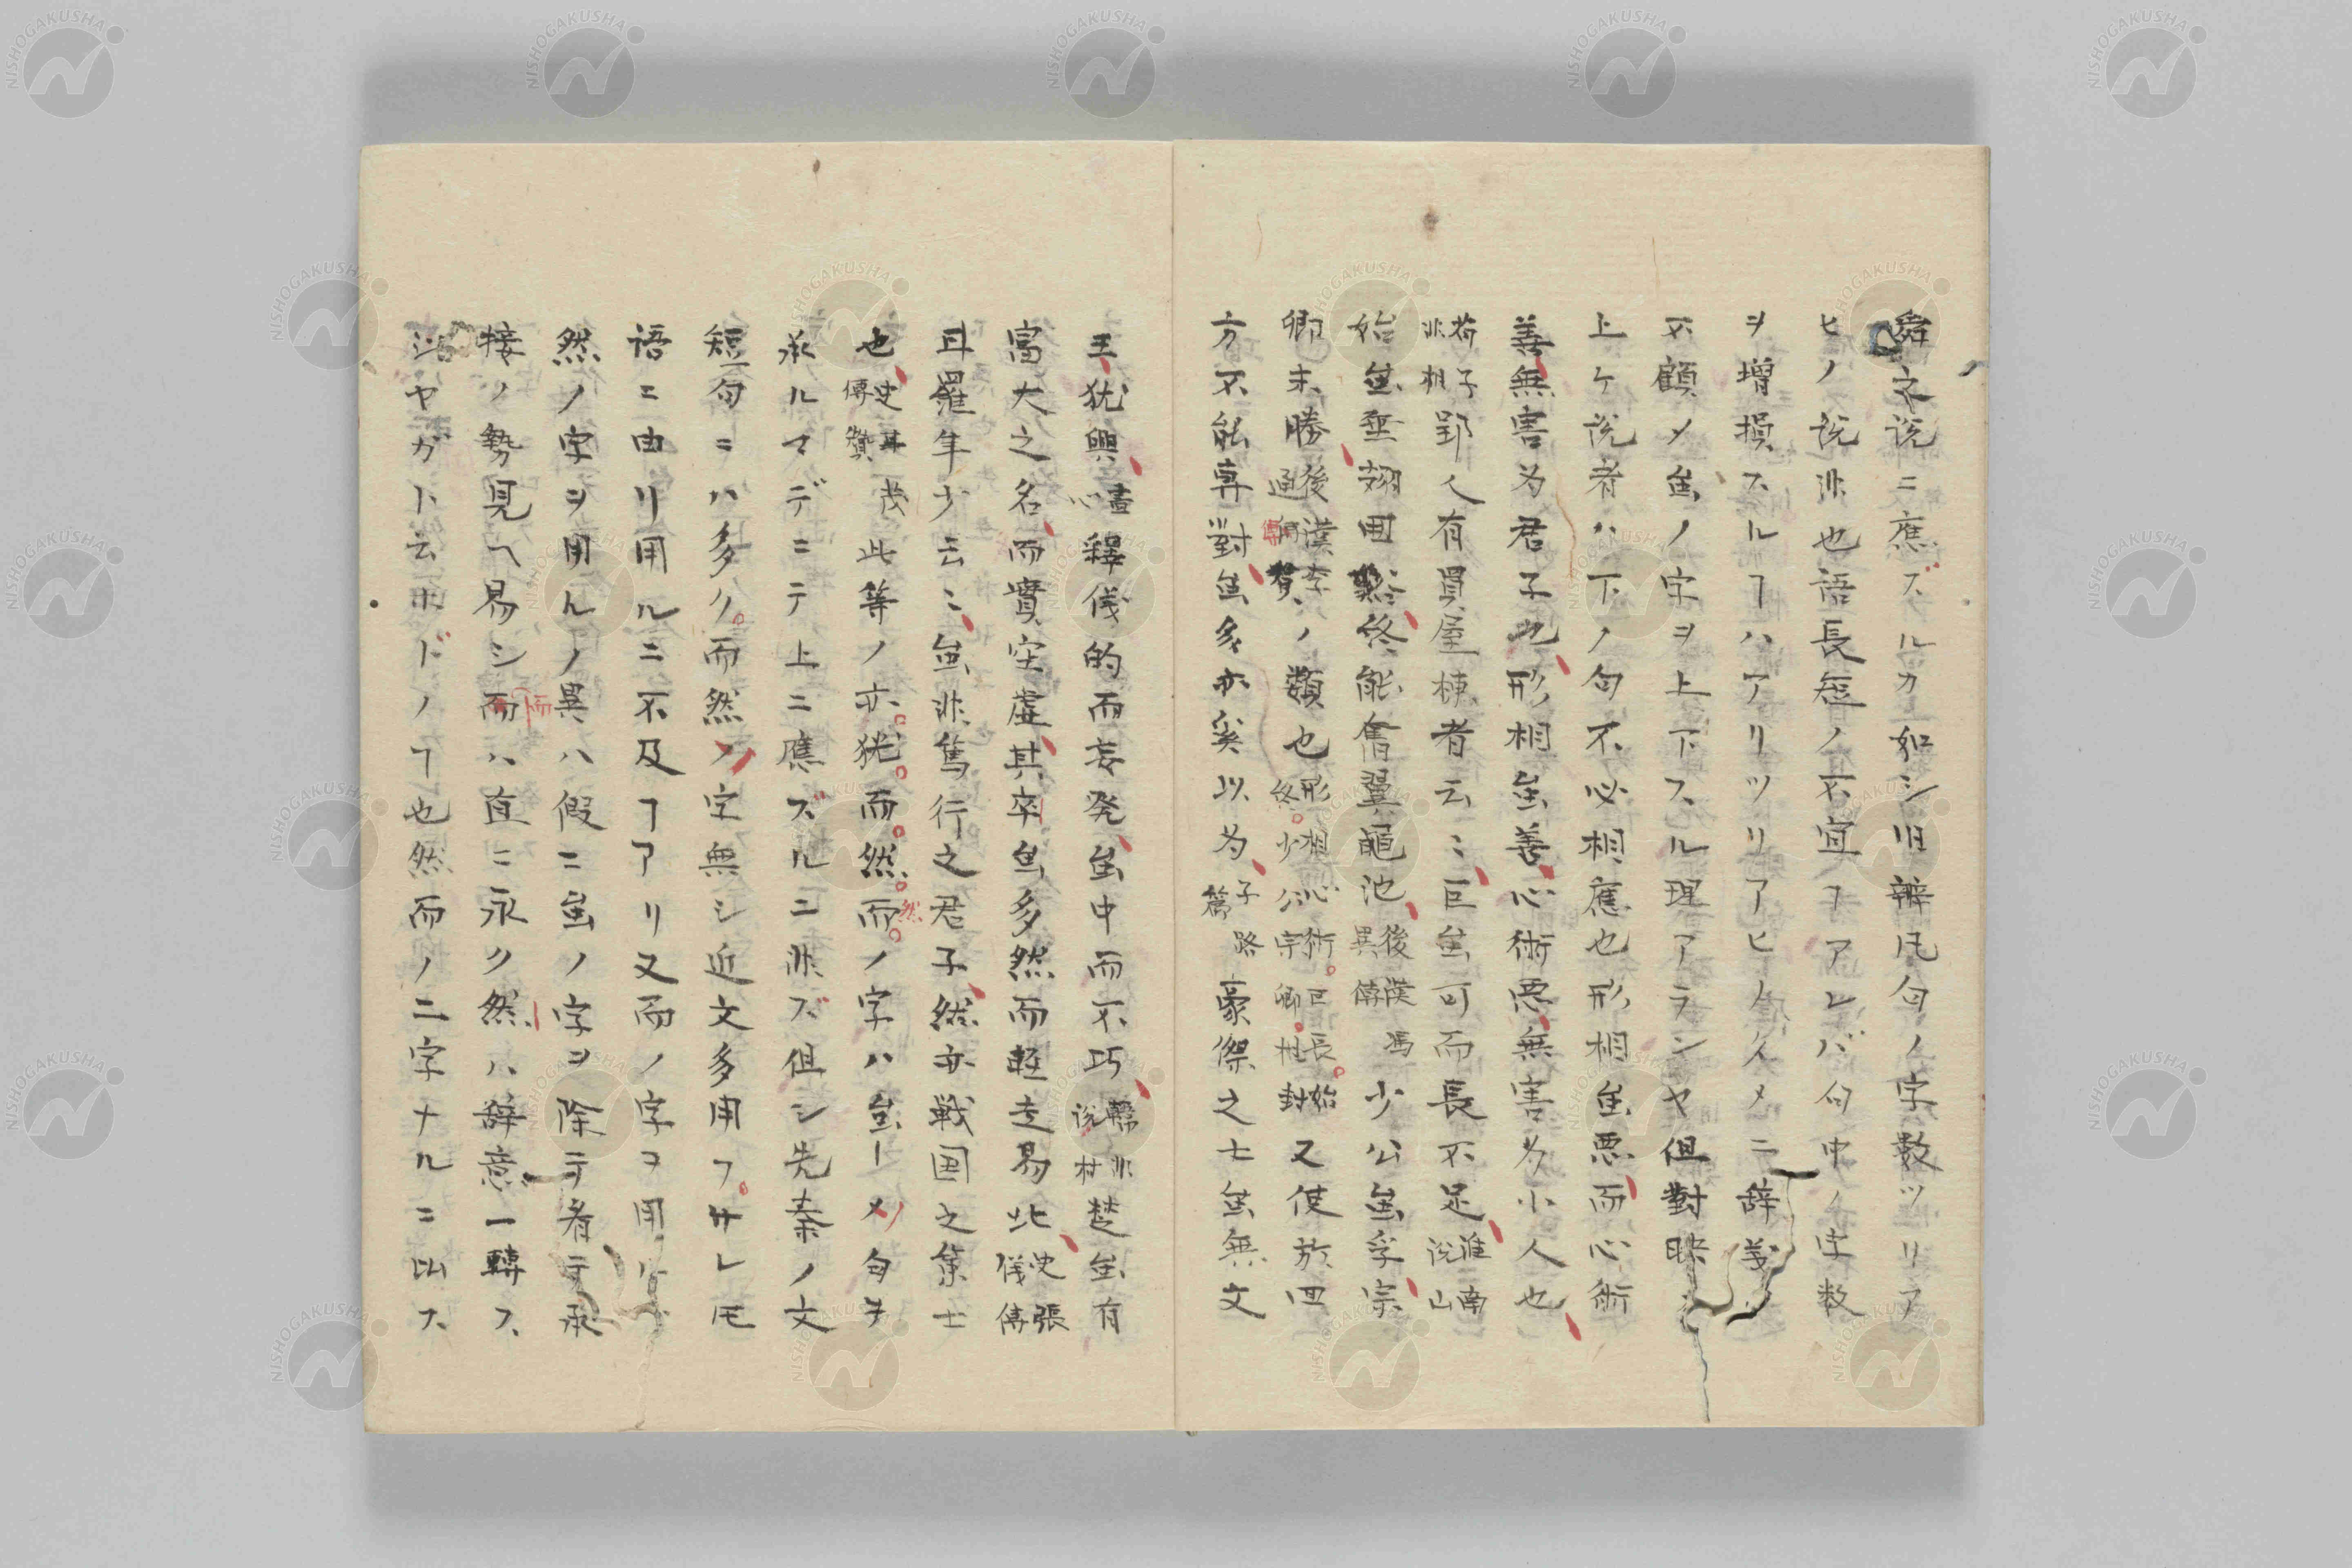 舜之説ニ應ズルカ如シ旧辨凡句ノ字数ツリア
ヒノ説非也語長短ノ不宜ヿアレバ句中ノ字数
ヲ増損スルヿハアリツリアヒノタメニ辞義ノ
不顧メ虽ノ字ヲ上下スル理アランヤ但對映
上ケ説者ハ下ノ句不必相應也形相虽悪而心術
善無害為君子也形相虽善心術悪無害為小人也
荀子非相郢人有買屋棟者云〻巨虽可而長不足淮南説山
始虽垂翅囬谿終能奮翼黽池後漢馮異傳少公虽孚宗
卿未勝後漢李通傳賛ノ類也形相心術巨長始終少公宗卿村封又使於四
方不能専對虽多亦奚以為子路篇豪傑之士虽無文
王猶興盡心釋儀的而妄発虽中而不巧韓非説林楚虽有
富大之名而實空虚其卒虽多然而軽走易北史張儀傳
且羅年少云〻虽非篤行之君子然亦戦国之策士
也史甘茂傳賛此等ノ亦猶而然然而ノ字ハ虽ーメ句ヲ
承ルマデニテ上ニ應ズルニ非ズ但シ先秦ノ文
短句ニハ多ク而然ノ字無シ近文多用フサレ𪜈
語ニ由リ用ルニ不及ヿアリ又而ノ字ヲ用リ
然ノ字ヲ用ルノ異ハ假ニ虽ノ字ヲ除テ看テ承
接ノ勢見ヘ易シ而而ハ直ニ永ク然ハ辞意一轉ス
ヤガト云ホドノヿ也然而ノ二字ナルニ出ス